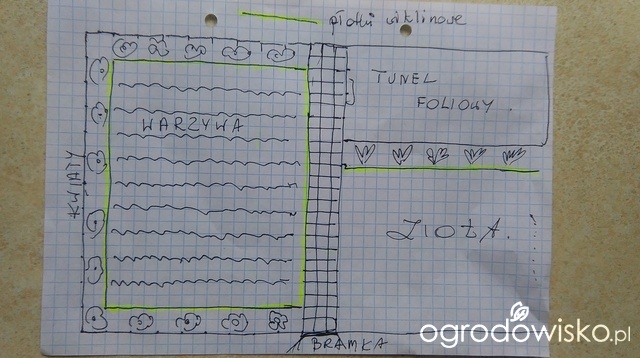 płotki wiklinowe
TUNEL
FOLIOWY.
WARZYWA
KWIATY
ZIOŁA.
BRAMKA
ogrodowisko.pl